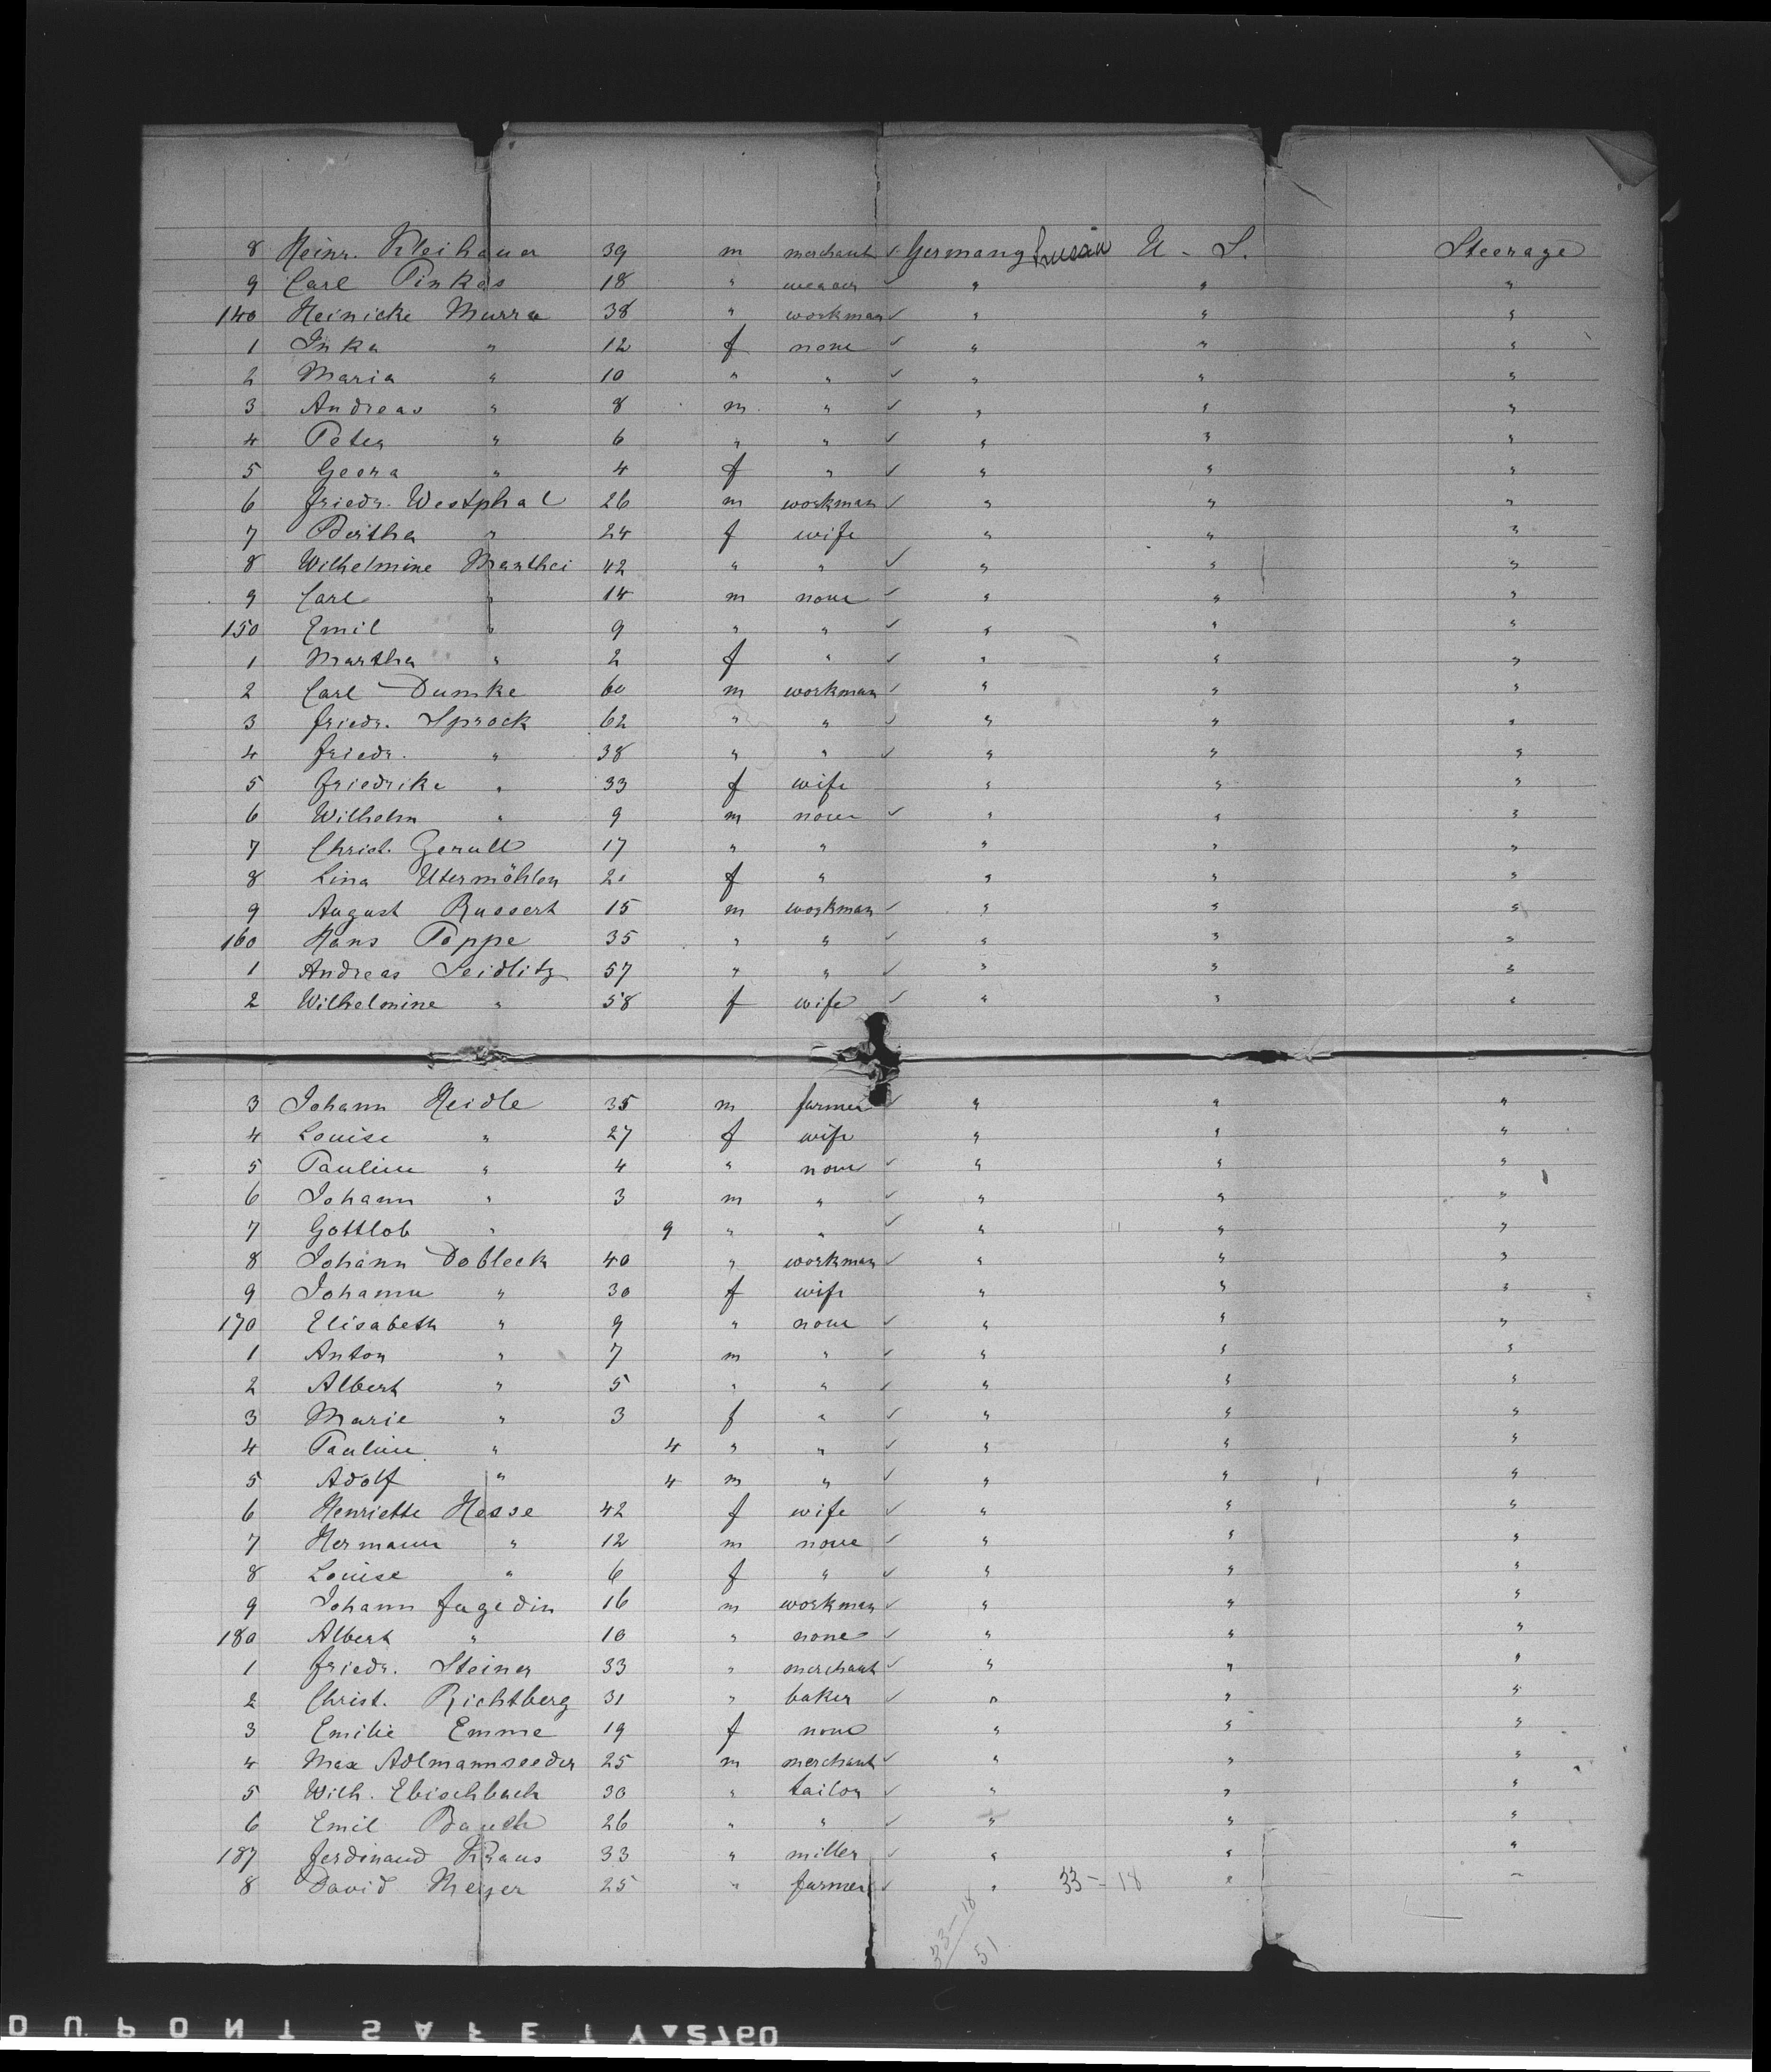 8 Heinr. Kleihauer 39 m merchant ✓ Germany U - S. Steerage
9 Carl Pinkas 18 " weaver ✓ " " "
140 Heinicke Murra 38 " workman ✓ " " "
1 Inka " 12 f none ✓ " " "
2 Maria " 10 " " ✓ " " "
3 Andreas " 8 m " ✓ " " "
4 Peter " 6 " " ✓ " " "
5 Geera " 4 f " ✓ " " "
6 Friedr. Westphal 26 m workman ✓ " " "
7 Bertha " 24 f wife " " "
8 Wilhelmine Manthei 42 " " ✓ " " "
9 Carl " 14 m none ✓ " " "
150 Emil " 9 " " ✓ " " "
1 Martha " 2 f " ✓ " " "
2 Carl Dumke 60 m workman ✓ " " "
3 Friedr. Sprock 62 " " ✓ " " "
4 Friedr. " 38 " " ✓ " " "
5 Friedrike " 33 f wife " " "
6 Wilhelm " 9 m none ✓ " " "
7 Christ. Gerull 17 " " " " "
8 Lina Utermöhlen 21 f " " " "
9 August Russert 15 m workman ✓ " " "
160 Hans Poppe 35 " " ✓ " " "
1 Andreas Seidlitz 57 " " ✓ " " "
2 Wilhelmine " 58 f wife ✓ " " "
3 Johann Heidle 35 m farmer ✓ " " "
4 Louise " 27 f wife " " "
5 Pauline " 4 " none ✓ " " "
6 Johann " 3 m " ✓ " " "
7 Gottlob " 9 " " ✓ " " "
8 Johann Dobleck 40 " workman ✓ " " "
9 Johanne " 30 f wife " " "
170 Elisabeth " 9 " none ✓ " " "
1 Anton " 7 m " ✓ " " "
2 Albert " 5 " " ✓ " " "
3 Marie " 3 f " ✓ " " "
4 Pauline " 4 " " ✓ " " "
5 Adolf " 4 m " ✓ " " "
6 Henriette Hesse 42 f wife ✓ " " "
7 Hermann " 12 m none ✓ " " "
8 Louise " 6 f " ✓ " " "
9 Johann Fagedin 16 m workman ✓ " " "
180 Albert " 10 " none ✓ " " "
1 Friedr. Steiner 33 " merchant ✓ " " "
2 Christ. Richtberg 31 " baker ✓ " " "
3 Emilie Emme 19 f none " " "
4 Max Adlmannseeder 25 m merchant ✓ " " "
5 Wilh. Ebischbach 30 " tailor ✓ " " "
6 Emil Bauth 26 " " ✓ " " "
187 Ferdinand Kraus 33 " miller ✓ " " "
8 David Meyer 25 " farmer ✓ " 33-18 " "
33-18
51
DUPONT SAFETY 2760